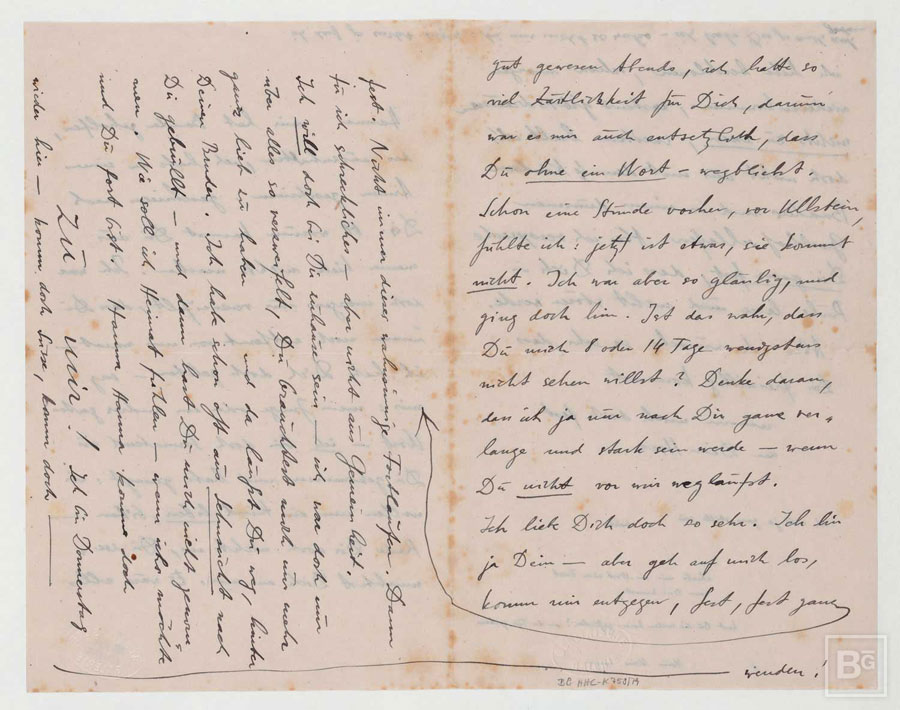 gut gewesen Abends, ich hatte so
viel Zärtlichkeit für Dich, darum
war es mir auch entsetzlich, dass
Du ohne ein Wort – wegbliebst.
Schon eine Stunde vorher, vor Ullstein,
fühlte ich: jetzt ist etwas, sie kommt
nicht. Ich war aber so gläubig, und
ging doch hin. Ist das wahr, dass
Du mich 8 oder 14 Tage wenigstens
nicht sehen willst? Denke daran,
dass ich ja nur nach Dir ganz ver-
lange und stark sein werde – wenn
Du nicht vor mir wegläufst.
Ich liebe Dich doch so sehr. Ich bin
ja Dein – aber geh auf mich los,
komm mir entgegen, fest, fest ganz
fest. Nicht immer dieses wahnsinnige Fortlaufen. Dann
tu ich – aber nicht aus Gemeinheit.
Ich will doch bei Dir zuhause sein – ich war doch nur
über alles so verzweifelt, Du brauchtest mich nur mehr
ganz lieb zu haben und da läufst Du weg, hinter
Deinen Bruder. Ich habe schon oft aus Sehnsucht nach
Dir gebrüllt – und dann hast Du mich nicht genom-
men. Wie soll ich Heimat fühlen – wenn ichs möchte
und Du fort bist. Hanna, Hanna komm doch
zu mir! Ich bin Donnerstag
wieder hier – komm doch Süsse, komm doch
wenden!
BG